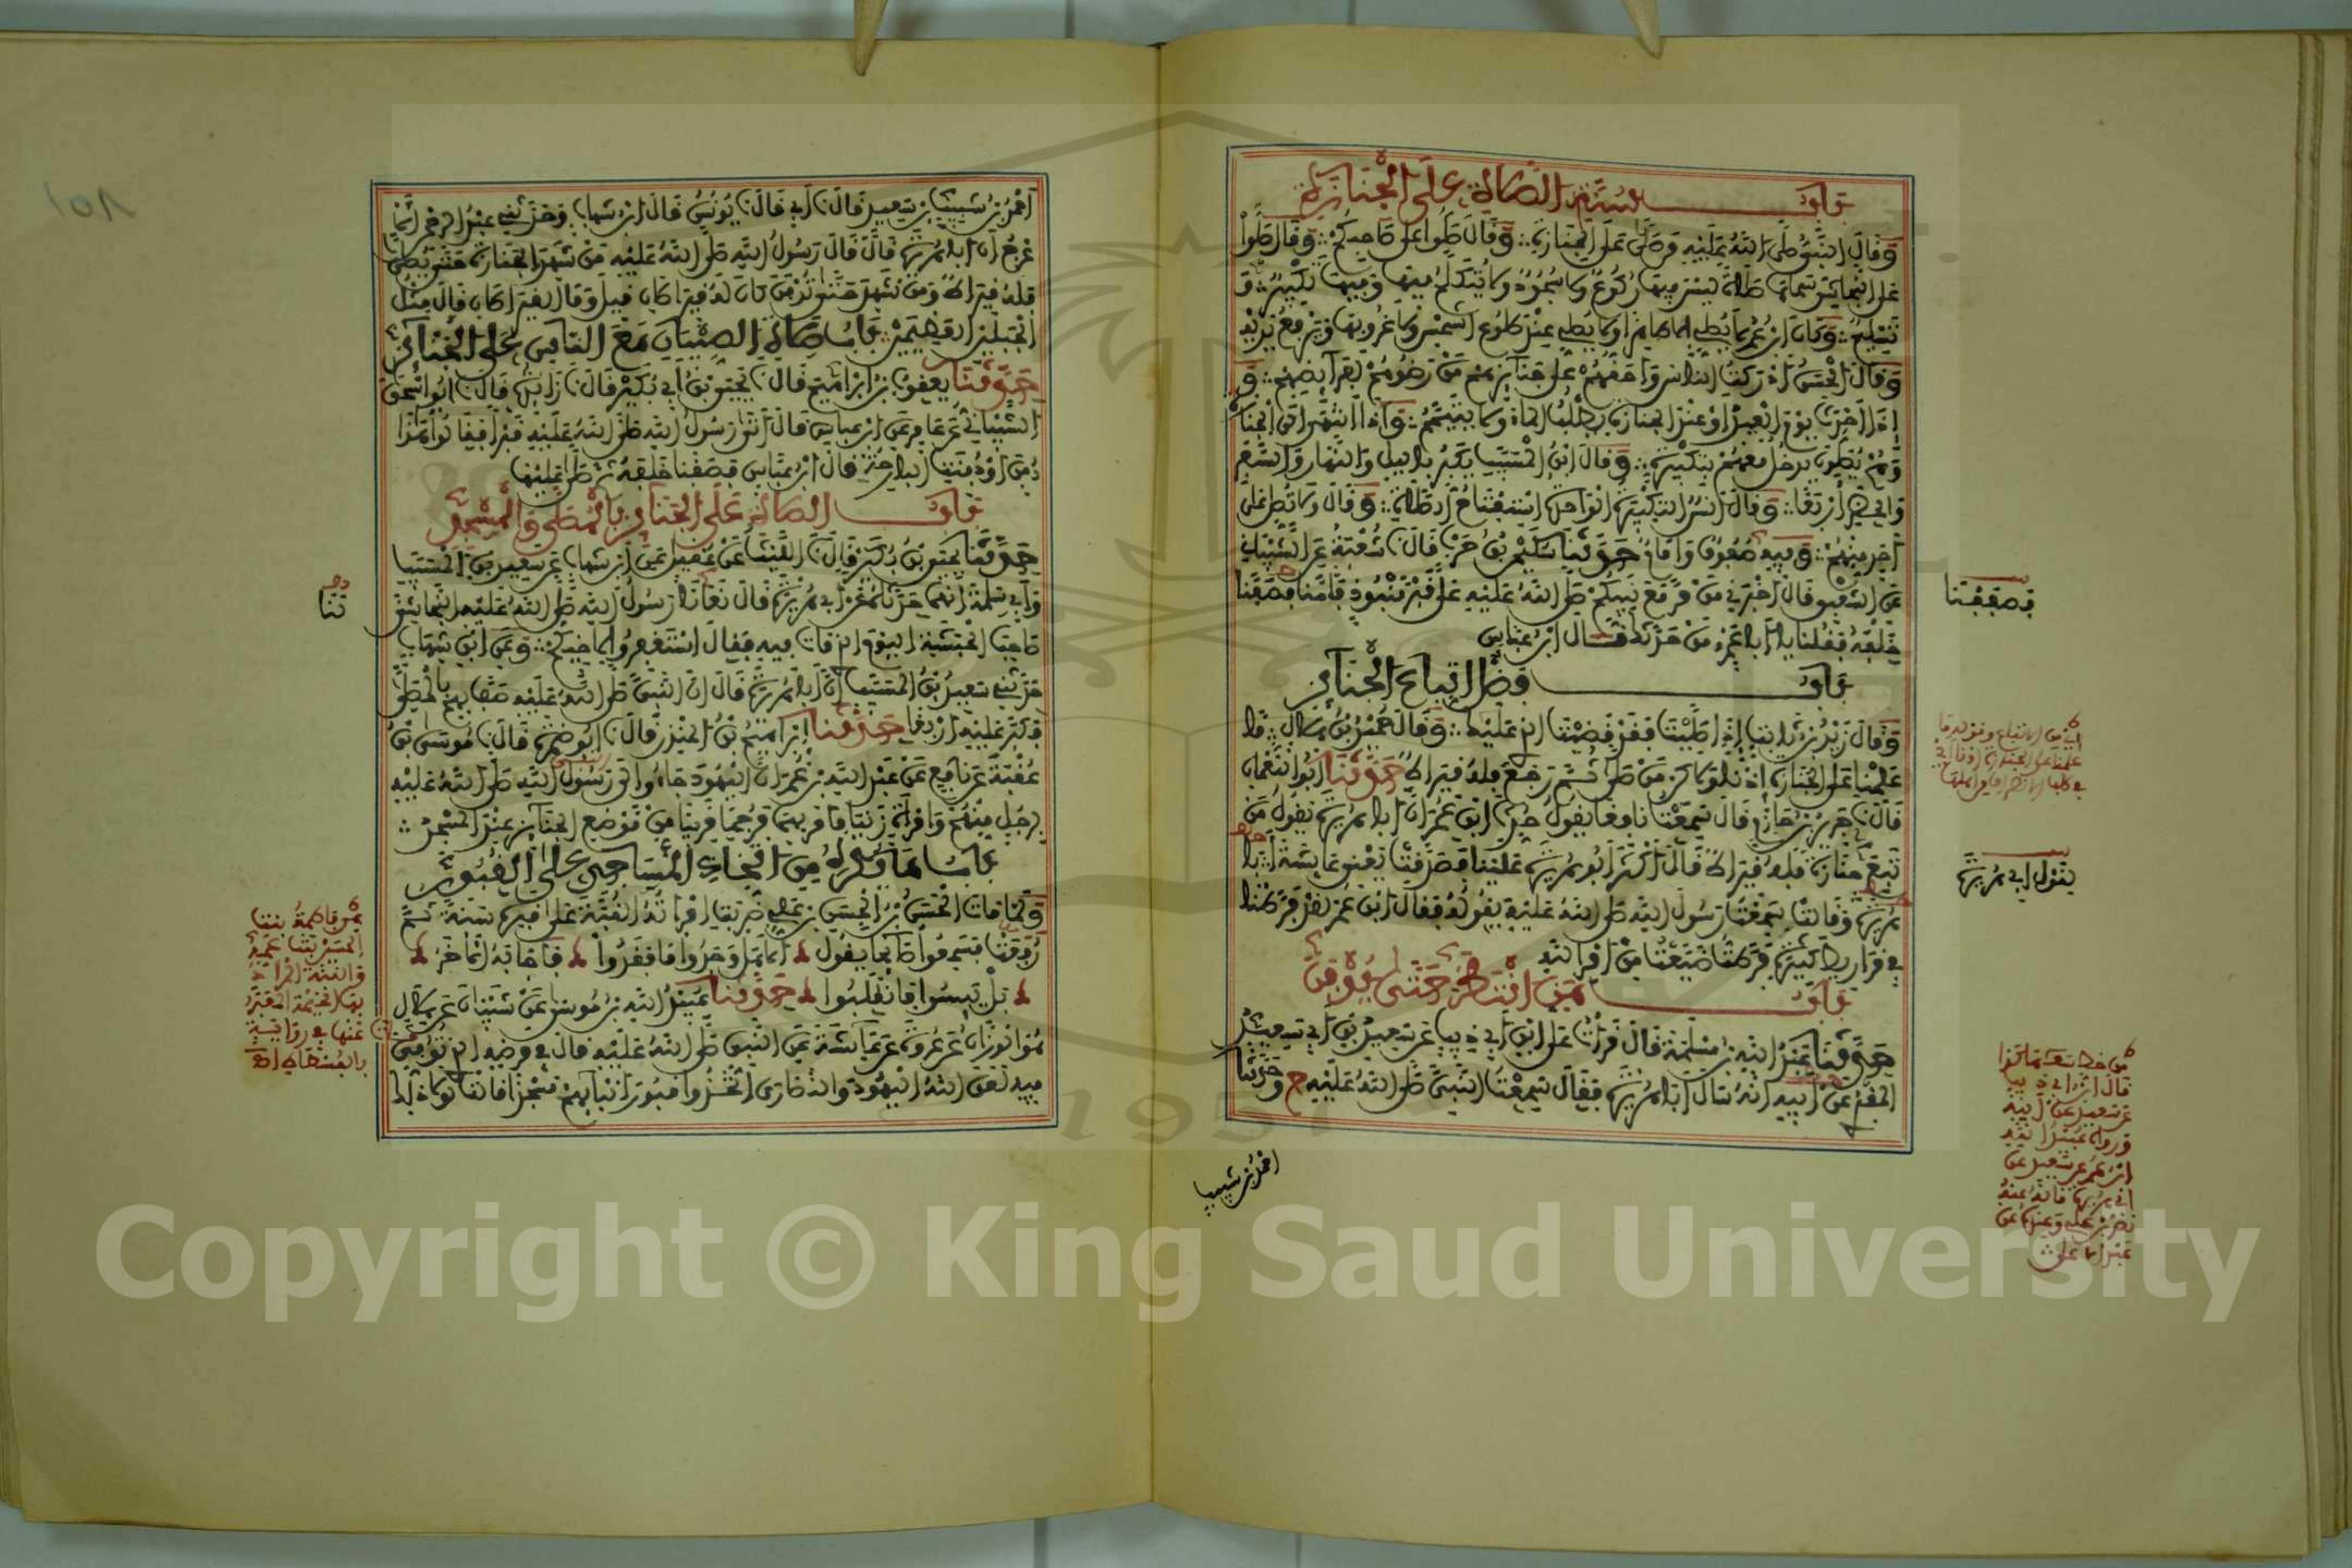 بَابُ سُنَّةِ الصَّلَاةِ عَلَى الْجَنَازَةِ
وَقَالَ النَّبِيُّ صَلَّى اللهُ عَلَيْهِ مَنْ صَلَّى عَلَى الْجَنَازَةِ وَقَالَ صَلُّوا عَلَى صَاحِبِكُمْ وَقَالَ صَلُّوا
عَلَى النَّجَاشِيِّ سَمَّاهَا صَلَاةً لَيْسَ فِيهَا رُكُوعٌ وَلَا سُجُودٌ وَلَا يُتَكَلَّمُ فِيهَا وَفِيهَا تَكْبِيرٌ وَ
تَسْلِيمٌ وَكَانَ ابْنُ عُمَرَ لَا يُصَلِّي إِلَّا طَاهِرًا وَلَا يُصَلِّي عِنْدَ طُلُوعِ الشَّمْسِ وَلَا غُرُوبِهَا وَيَرْفَعُ يَدَيْهِ
وَقَالَ الْحَسَنُ أَدْرَكْتُ النَّاسَ وَأَحَقُّهُمْ عَلَى جَنَائِزِهِمْ مَنْ رَضُوهُمْ لِفَرَائِضِهِمْ وَ
إِذَا أَحْدَثَ يَوْمَ الْعِيدِ أَوْ عِنْدَ الْجَنَازَةِ يَطْلُبُ الْمَاءَ وَلَا يَتَيَمَّمُ وَإِذَا انْتَهَى إِلَى الْجَنَازَةِ
وَهُمْ يُصَلُّونَ يَدْخُلُ مَعَهُمْ بِتَكْبِيرَةٍ وَقَالَ ابْنُ الْمُسَيِّبِ يُكَبِّرُ بِاللَّيْلِ وَالنَّهَارِ وَالسَّفَرِ
وَالْحَضَرِ أَرْبَعًا وَقَالَ أَنَسٌ التَّكْبِيرَةُ الْوَاحِدَةُ اسْتِفْتَاحُ الصَّلَاةِ وَقَالَ وَلَا تُصَلِّ عَلَى
أَحَدٍ مِنْهُمْ وَفِيهِ صُفُوفٌ وَإِمَامٌ حَدَّثَنَا سُلَيْمَانُ بْنُ حَرْبٍ قَالَ نَا شُعْبَةُ عَنِ الشَّيْبَانِيِّ
عَنِ الشَّعْبِيِّ قَالَ أَخْبَرَنِي مَنْ مَرَّ مَعَ نَبِيِّكُمْ صَلَّى اللهُ عَلَيْهِ عَلَى قَبْرٍ مَنْبُوذٍ فَأَمَّنَا فَصَفَّنَا
خَلْفَهُ فَقُلْنَا يَا أَبَا عَمْرٍو مَنْ حَدَّثَكَ قَالَ ابْنُ عَبَّاسٍ
بَابُ فَضْلِ اتِّبَاعِ الْجَنَائِزِ
وَقَالَ زَيْدُ بْنُ ثَابِتٍ إِذَا صَلَّيْتَ فَقَدْ قَضَيْتَ الَّذِي عَلَيْكَ وَقَالَ حُمَيْدُ بْنُ هِلَالٍ مَا
عَلِمْنَا عَلَى الْجَنَازَةِ إِذْنًا وَلَكِنْ مَنْ صَلَّى ثُمَّ رَجَعَ فَلَهُ قِيرَاطٌ حَدَّثَنَا أَبُو النُّعْمَانِ
قَالَ نَا جَرِيرُ بْنُ حَازِمٍ قَالَ سَمِعْتُ نَافِعًا يَقُولُ حُدِّثَ ابْنُ عُمَرَ أَنَّ أَبَا هُرَيْرَةَ يَقُولُ مَنْ
تَبِعَ جَنَازَةً فَلَهُ قِيرَاطٌ قَالَ أَكْثَرَ أَبُو هُرَيْرَةَ عَلَيْنَا فَصَدَّقَتْ يَعْنِي عَائِشَةَ أَبَا
هُرَيْرَةَ وَقَالَتْ سَمِعْتُ رَسُولَ اللهِ صَلَّى اللهُ عَلَيْهِ يَقُولُهُ فَقَالَ ابْنُ عُمَرَ لَقَدْ فَرَّطْنَا
فِي قَرَارِيطَ كَثِيرَةٍ فَرَّطْتُ ضَيَّعْتُ مِنْ أَمْرِ اللهِ
بَابُ مَنِ انْتَظَرَ حَتَّى يُدْفَنَ
حَدَّثَنَا عَبْدُ اللهِ بْنُ مَسْلَمَةَ قَالَ قَرَأْتُ عَلَى ابْنِ أَبِي ذِئْبٍ عَنْ سَعِيدِ بْنِ أَبِي سَعِيدٍ
الْمَقْبُرِيِّ عَنْ أَبِيهِ أَنَّهُ سَأَلَ أَبَا هُرَيْرَةَ فَقَالَ سَمِعْتُ النَّبِيَّ صَلَّى اللهُ عَلَيْهِ ح وَحَدَّثَنَا
أَحْمَدُ بْنُ شَبِيبِ
فَصَفَفْنَا
يَقُولُ أَبِي هُرَيْرَةَ
أَحْمَدُ بْنُ شَبِيبِ بْنِ سَعِيدٍ قَالَ نَا أَبِي قَالَ نَا يُونُسُ قَالَ ابْنُ شِهَابٍ وَحَدَّثَنِي عَبْدُ الرَّحْمَنِ
الْأَعْرَجُ أَنَّ أَبَا هُرَيْرَةَ قَالَ قَالَ رَسُولُ اللهِ صَلَّى اللهُ عَلَيْهِ مَنْ شَهِدَ الْجَنَازَةَ حَتَّى يُصَلِّيَ
فَلَهُ قِيرَاطٌ وَمَنْ شَهِدَ حَتَّى تُدْفَنَ كَانَ لَهُ قِيرَاطَانِ قِيلَ وَمَا الْقِيرَاطَانِ قَالَ مِثْلُ
الْجَبَلَيْنِ الْعَظِيمَيْنِ بَابُ صَلَاةِ الصِّبْيَانِ مَعَ النَّاسِ عَلَى الْجَنَائِزِ
حَدَّثَنَا يَعْقُوبُ بْنُ إِبْرَاهِيمَ قَالَ نَا يَحْيَى بْنُ أَبِي بُكَيْرٍ قَالَ نَا زَائِدَةُ قَالَ نَا أَبُو إِسْحَاقَ
الشَّيْبَانِيُّ عَنْ عَامِرٍ عَنِ ابْنِ عَبَّاسٍ قَالَ أَتَى رَسُولُ اللهِ صَلَّى اللهُ عَلَيْهِ قَبْرًا فَقَالُوا هَذَا
دُفِنَ أَوْ دُفِنَتِ الْبَارِحَةَ قَالَ ابْنُ عَبَّاسٍ فَصَفَفْنَا خَلْفَهُ ثُمَّ صَلَّى عَلَيْهَا
بَابُ الصَّلَاةِ عَلَى الْجَنَائِزِ بِالْمُصَلَّى وَالْمَسْجِدِ
حَدَّثَنَا يَحْيَى بْنُ بُكَيْرٍ قَالَ نَا اللَّيْثُ عَنْ عُقَيْلٍ عَنِ ابْنِ شِهَابٍ عَنْ سَعِيدِ بْنِ الْمُسَيِّبِ
وَأَبِي سَلَمَةَ أَنَّهُمَا حَدَّثَاهُ عَنْ أَبِي هُرَيْرَةَ قَالَ نَعَى لَنَا رَسُولُ اللهِ صَلَّى اللهُ عَلَيْهِ النَّجَاشِيَّ
صَاحِبَ الْحَبَشَةِ الْيَوْمَ الَّذِي مَاتَ فِيهِ فَقَالَ اسْتَغْفِرُوا لِأَخِيكُمْ وَعَنِ ابْنِ شِهَابٍ
حَدَّثَنِي سَعِيدُ بْنُ الْمُسَيِّبِ أَنَّ أَبَا هُرَيْرَةَ قَالَ إِنَّ النَّبِيَّ صَلَّى اللهُ عَلَيْهِ صَفَّ بِهِمْ بِالْمُصَلَّى
فَكَبَّرَ عَلَيْهِ أَرْبَعًا حَدَّثَنَا إِبْرَاهِيمُ بْنُ الْمُنْذِرِ قَالَ نَا أَبُو ضَمْرَةَ قَالَ نَا مُوسَى بْنُ
عُقْبَةَ عَنْ نَافِعٍ عَنْ عَبْدِ اللهِ بْنِ عُمَرَ أَنَّ الْيَهُودَ جَاءُوا إِلَى رَسُولِ اللهِ صَلَّى اللهُ عَلَيْهِ
بِرَجُلٍ مِنْهُمْ وَامْرَأَةٍ زَنَيَا فَأَمَرَ بِهِمَا فَرُجِمَا قَرِيبًا مِنْ مَوْضِعِ الْجَنَائِزِ عِنْدَ الْمَسْجِدِ
بَابُ مَا يُكْرَهُ مِنَ اتِّخَاذِ الْمَسَاجِدِ عَلَى الْقُبُورِ
وَلَمَّا مَاتَ الْحَسَنُ بْنُ الْحَسَنِ بْنِ عَلِيٍّ ضَرَبَتِ امْرَأَتُهُ الْقُبَّةَ عَلَى قَبْرِهِ سَنَةً ثُمَّ
رُفِعَتْ فَسَمِعُوا صَائِحًا يَقُولُ أَلَا هَلْ وَجَدُوا مَا فَقَدُوا فَأَجَابَهُ الْآخَرُ
بَلْ يَئِسُوا فَانْقَلَبُوا حَدَّثَنَا عُبَيْدُ اللهِ بْنُ مُوسَى عَنْ شَيْبَانَ عَنْ هِلَالٍ
هُوَ الْوَزَّانُ عَنْ عُرْوَةَ عَنْ عَائِشَةَ عَنِ النَّبِيِّ صَلَّى اللهُ عَلَيْهِ قَالَ فِي مَرَضِهِ الَّذِي تُوُفِّيَ
فِيهِ لَعَنَ اللهُ الْيَهُودَ وَالنَّصَارَى اتَّخَذُوا قُبُورَ أَنْبِيَائِهِمْ مَسْجِدًا قَالَتْ وَلَوْلَا ذَلِكَ
Copyright © King Saud University
1957